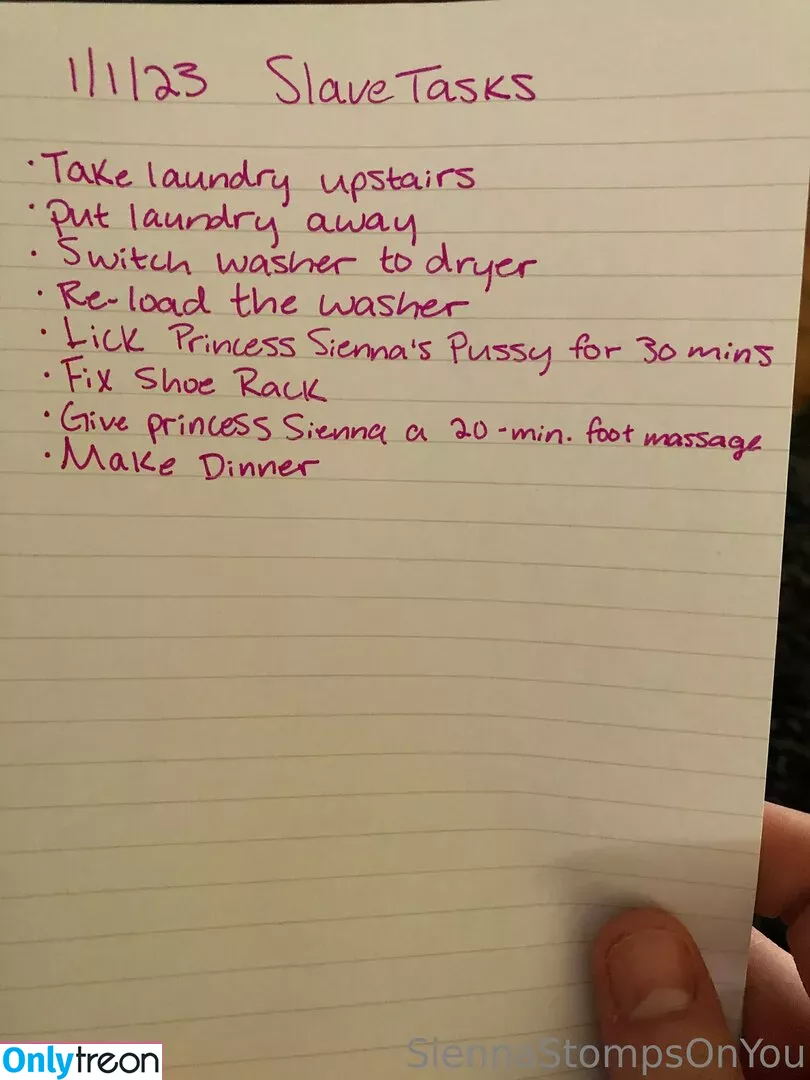 1/1/23 Slave Tasks
· Take laundry upstairs
· Put laundry away
· Switch washer to dryer
· Re-load the washer
· Lick Princess Sienna's Pussy for 30 mins
· Fix Shoe Rack
· Give princess Sienna a 20-min. foot massage
· Make Dinner
Onlytreon
SiennaStompsOnYou